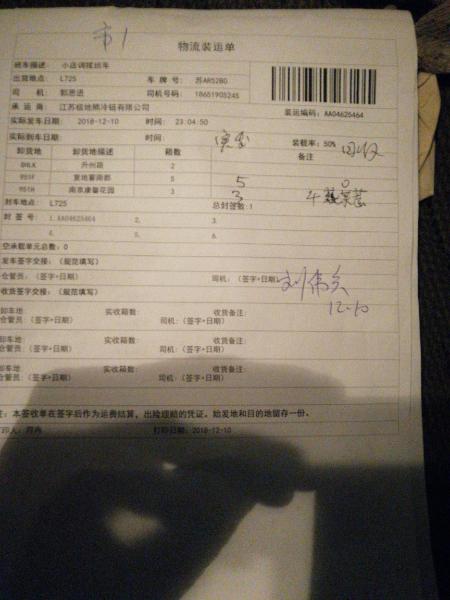 市1
物流装运单
班车描述: 小店调拨班车
出货地点: L725 车 牌 号: 苏AR52B0
司 机: 郭思进 司机号码: 18651905245
承 运 商: 江苏极地熊冷链有限公司 装运编码: AA04625464
实际发车日期: 2018-12-10 时间: 23:04:50
实际到车日期: 时间: 装载率: 50% 回收
卸货地 卸货地描述 箱数 实查 备注
8HLK 升州路 2
951F 复地宴南都 5 5 0
951H 南京康馨花园 3 3
封车地点: L725 总封签数:1
封 签 号: 1.AA04625464 2. 3.
4. 5. 6.
空承载单元总数: 0
发车签字交接: (规范填写)
仓管员: (签字+日期) 司机: (签字+日期) 刘伟兵
收货签字交接: (规范填写) 12-10
卸车地: 实收箱数: 收货备注:
仓管员: (签字+日期) 司机: (签字+日期)
卸车地: 实收箱数: 收货备注:
仓管员: (签字+日期) 司机: (签字+日期)
卸车地 实收箱数: 收货备注:
仓管员: (签字+日期) 司机: (签字+日期)
注: 本签收单在签字后作为运费结算, 出险理赔的凭证。始发地和目的地留存一份。
打印人: 打印日期: 2018-12-10